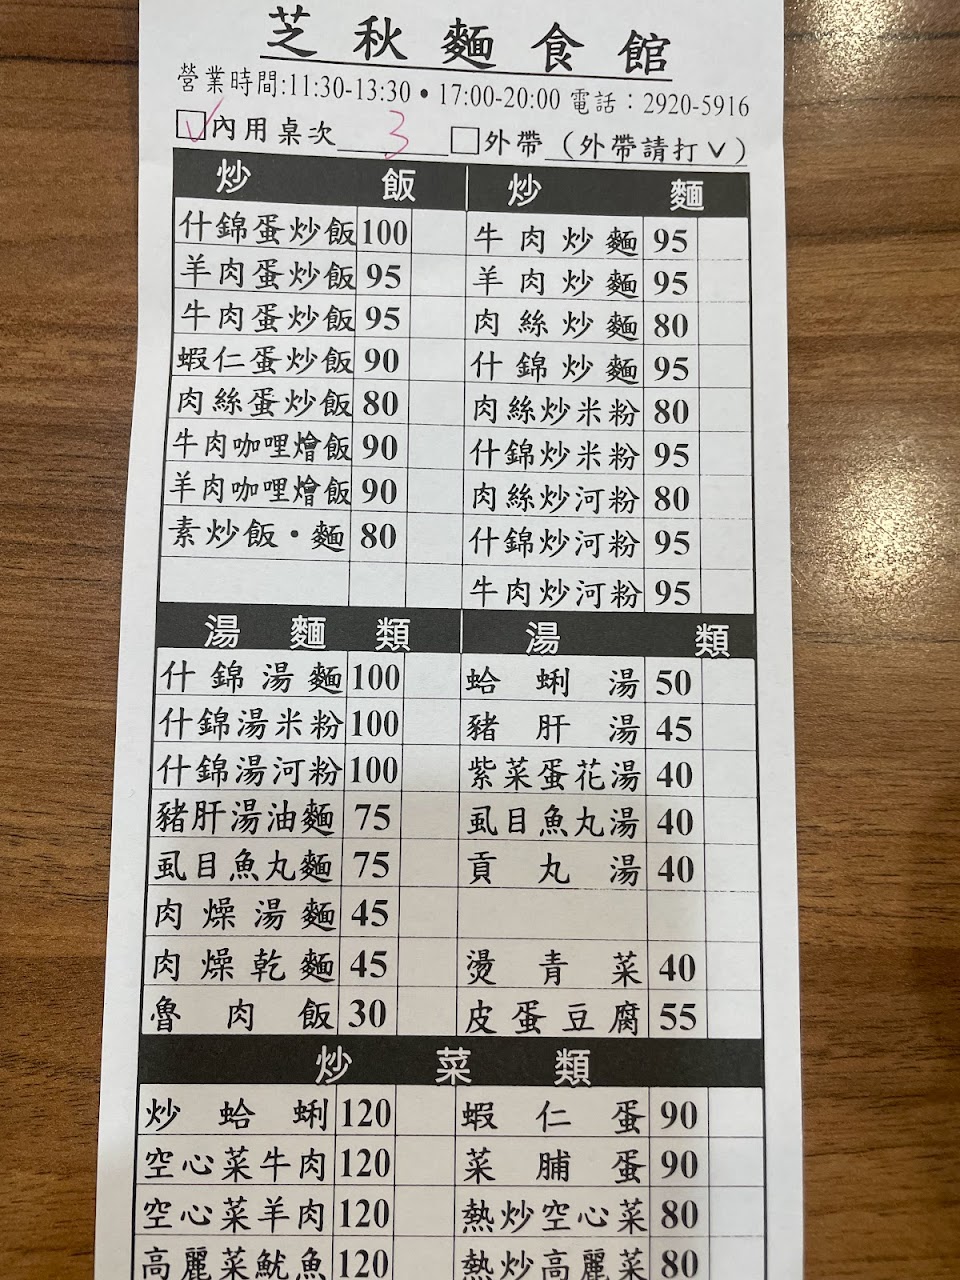 芝秋麵食館
營業時間:11:30-13:30•17:00-20:00 電話：2920-5916
☑內用桌次 3 □外帶 (外帶請打∨)
炒飯 炒麵
什錦蛋炒飯 100 牛肉炒麵 95
羊肉蛋炒飯 95 羊肉炒麵 95
牛肉蛋炒飯 95 肉絲炒麵 80
蝦仁蛋炒飯 90 什錦炒麵 95
肉絲蛋炒飯 80 肉絲炒米粉 80
牛肉咖哩燴飯 90 什錦炒米粉 95
羊肉咖哩燴飯 90 肉絲炒河粉 80
素炒飯•麵 80 什錦炒河粉 95
牛肉炒河粉 95
湯麵類 湯類
什錦湯麵 100 蛤蜊湯 50
什錦湯米粉 100 豬肝湯 45
什錦湯河粉 100 紫菜蛋花湯 40
豬肝湯油麵 75 虱目魚丸湯 40
虱目魚丸麵 75 貢丸湯 40
肉燥湯麵 45
肉燥乾麵 45 燙青菜 40
魯肉飯 30 皮蛋豆腐 55
炒菜類
炒蛤蜊 120 蝦仁蛋 90
空心菜牛肉 120 菜脯蛋 90
空心菜羊肉 120 熱炒空心菜 80
高麗菜魷魚 120 熱炒高麗菜 80